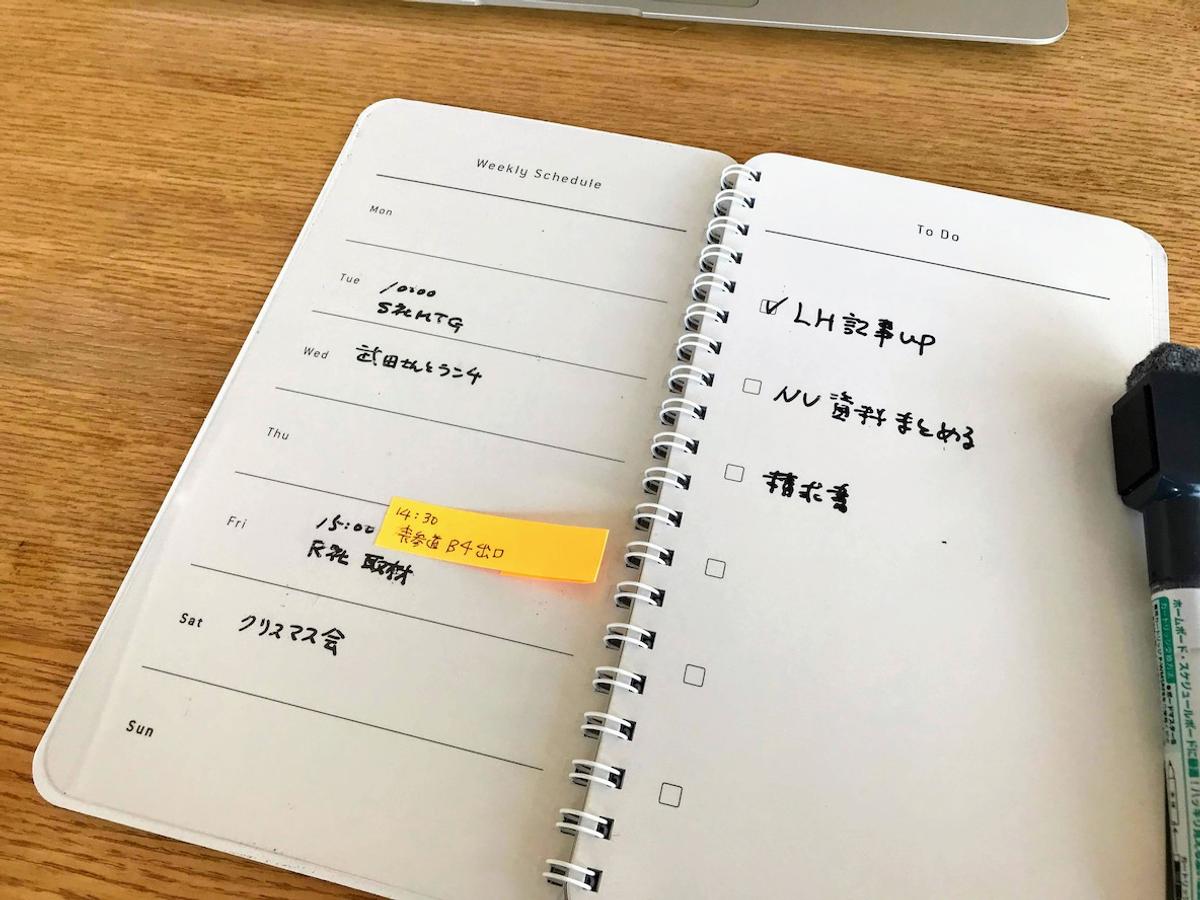 Weekly Schedule
Mon
Tue
10:00
S社MTG
Wed
武田さんとランチ
Thu
Fri
15:00
R社 取材
14:30
表参道 B4出口
Sat
クリスマス会
Sun
To Do
LH記事up
NU資料まとめる
請求書
ホームボード・スケジュールボードに最適!